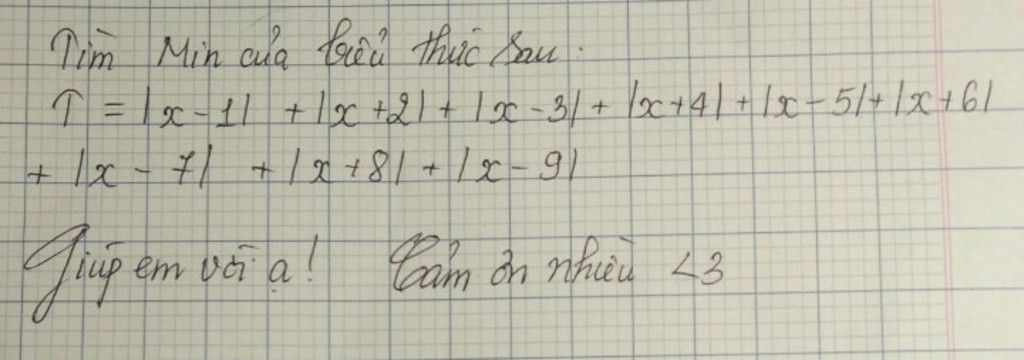 Tìm Min của biểu thức sau:
T = |x - 1| + |x + 2| + |x - 3| + |x + 4| + |x - 5| + |x + 6|
+ |x - 7| + |x + 8| + |x - 9|
Giúp em với ạ! Cảm ơn nhiều <3